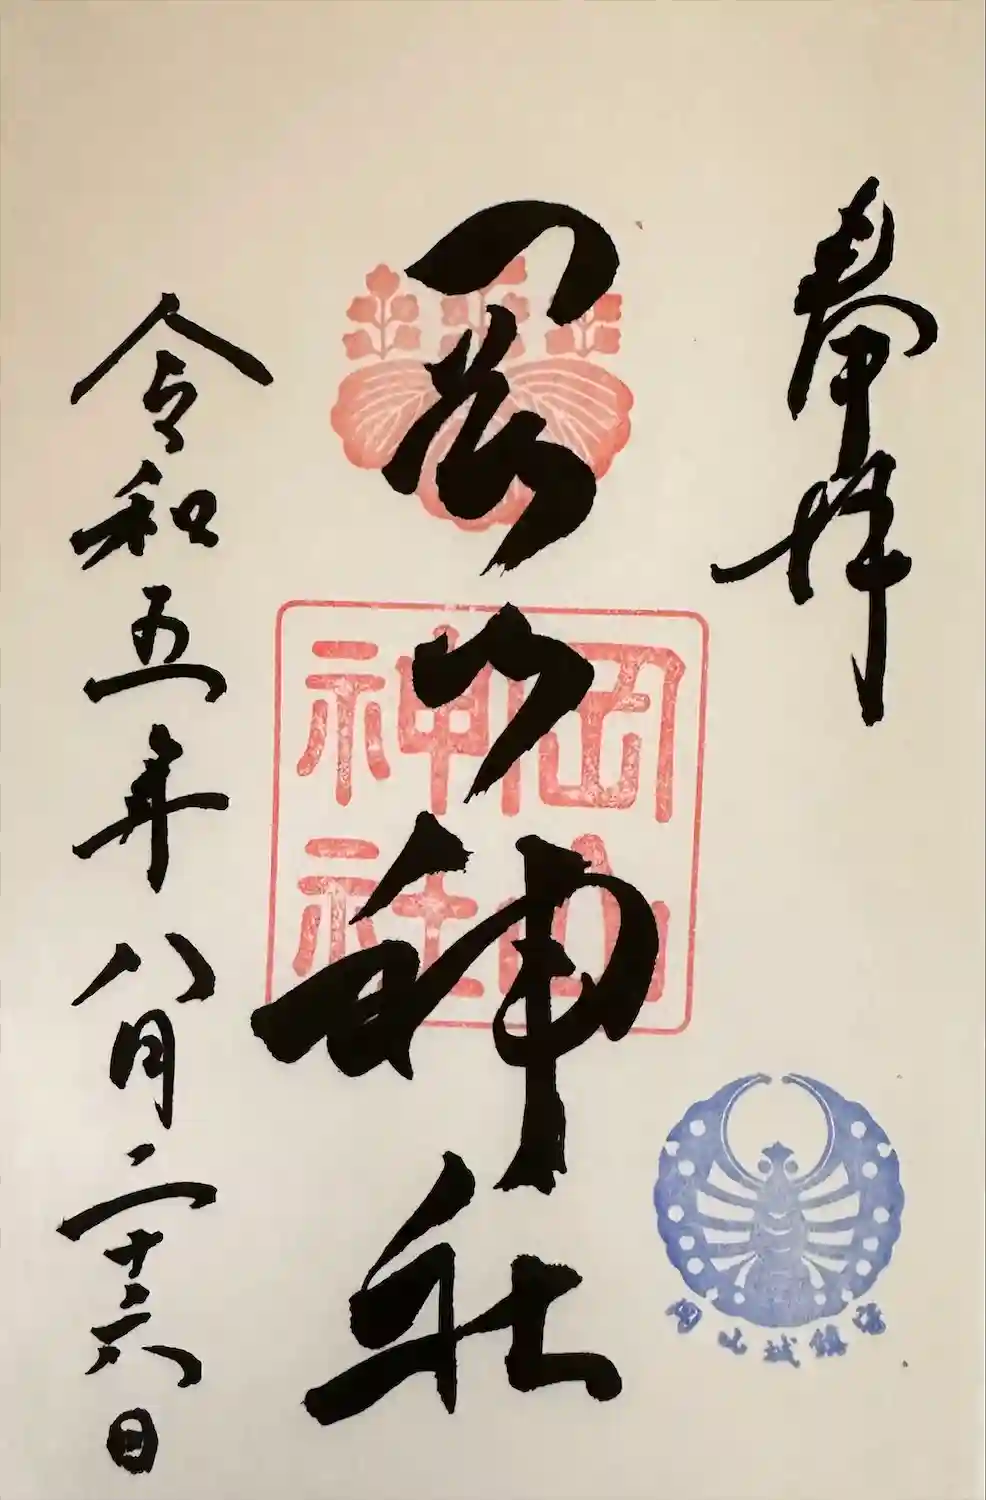 奉拝
岡山神社
令和五年八月二十六日
岡山
神社
岡山城鎮